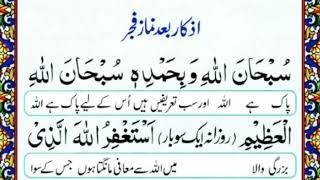 اذکار بعد نماز فجر
سُبْحَانَ اللهِ وَ بِحَمْدِهٖ سُبْحَانَ اللهِ
پاک ہے اللہ اور سب تعریفیں اُس کے لیے پاک ہے اللہ
الْعَظِيْمِ (روزانہ ایک سو بار) اَسْتَغْفِرُ اللهَ الَّذِیْ
بزرگی والا میں اللہ سے معافی مانگتا ہوں جس کے سوا